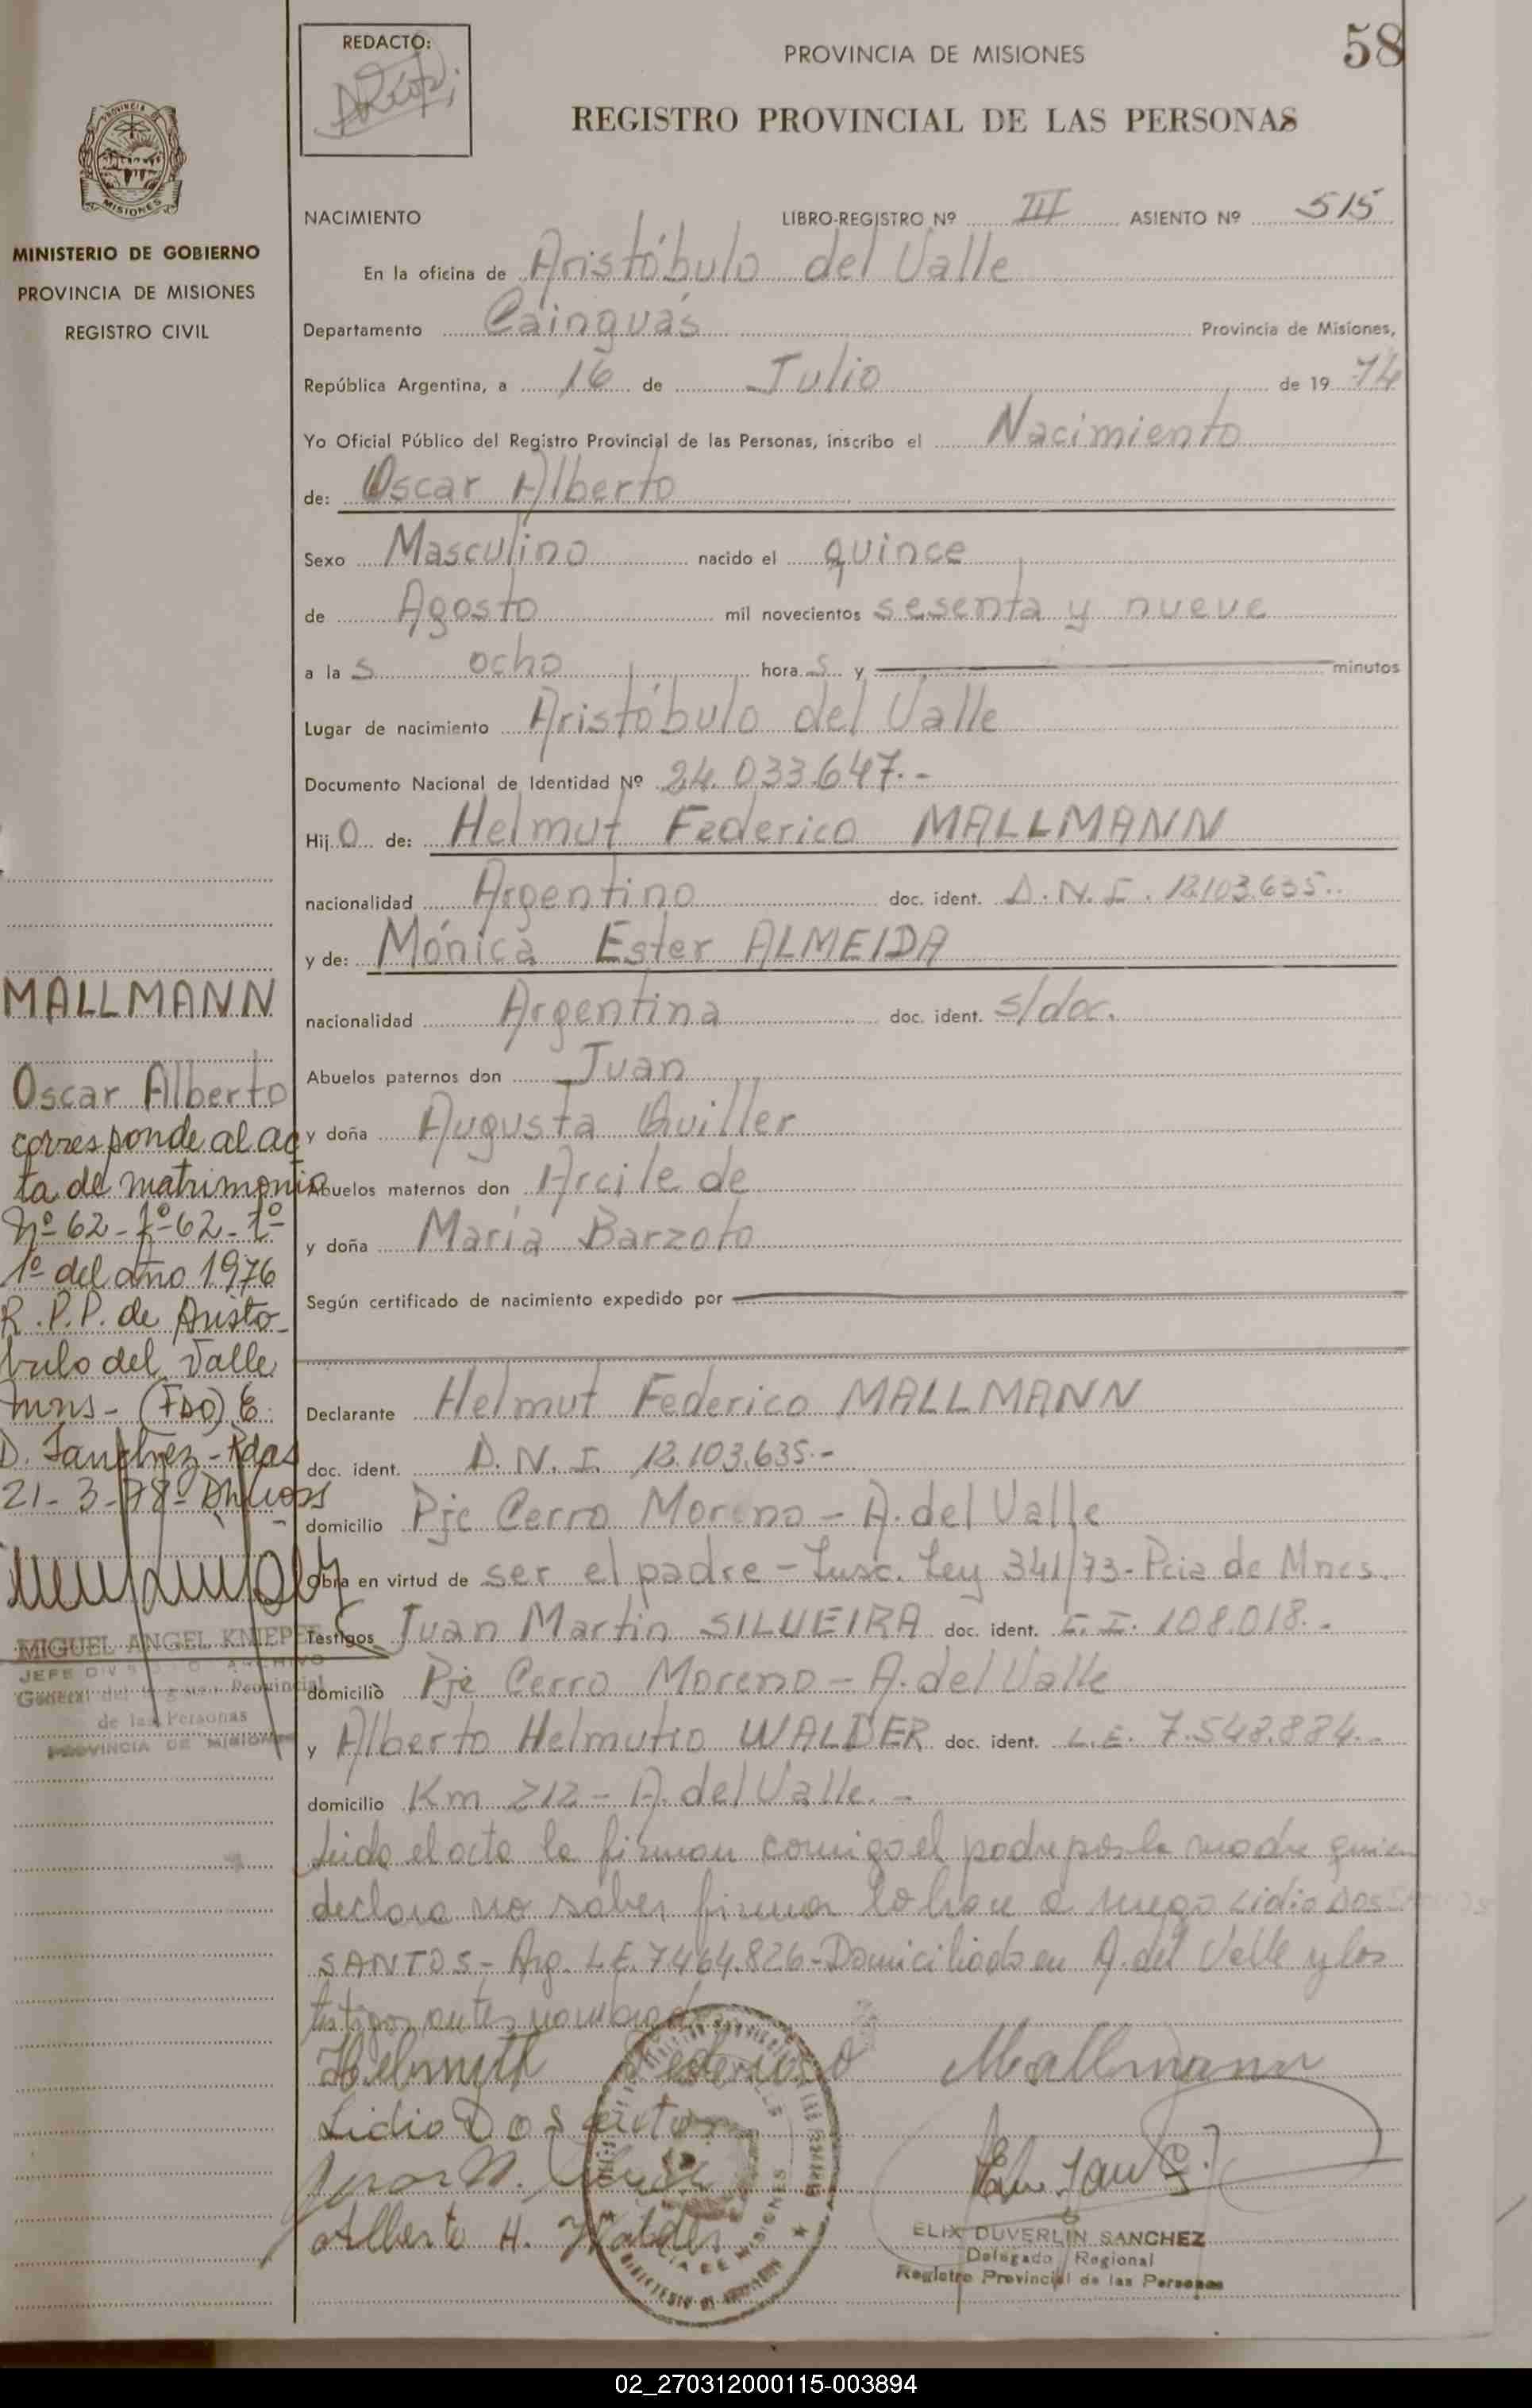 58
REDACTO:
PROVINCIA DE MISIONES
REGISTRO PROVINCIAL DE LAS PERSONAS
PROVINCIA
MISIONES
MINISTERIO DE GOBIERNO
PROVINCIA DE MISIONES
REGISTRO CIVIL
NACIMIENTO LIBRO-REGISTRO Nº III ASIENTO Nº 515
En la oficina de Aristóbulo del Valle
Departamento Cainguás Provincia de Misiones,
República Argentina, a 16 de Julio de 1974
Yo Oficial Público del Registro Provincial de las Personas, inscribo el Nacimiento
de: Oscar Alberto
Sexo Masculino nacido el quince
de Agosto mil novecientos sesenta y nueve
a la s ocho hora s y minutos
Lugar de nacimiento Aristóbulo del Valle
Documento Nacional de Identidad Nº 24.033.647.-
Hij o de: Helmut Federico MALLMANN
nacionalidad Argentino doc. ident. D.N.I. 12.103.635.-
y de: Mónica Ester ALMEIDA
nacionalidad Argentina doc. ident. s/doc.
Abuelos paternos don Juan
y doña Augusta Quiller
Abuelos maternos don Arcile de
y doña María Barzoto
Según certificado de nacimiento expedido por
Declarante Helmut Federico MALLMANN
doc. ident. D.N.I. 12.103.635.-
domicilio Pje Cerro Moreno - A. del Valle
Obra en virtud de ser el padre - Insc. Ley 341/73 - Pcia de Mnes.
Testigos Juan Martin SILVEIRA doc. ident. C.I. 108.018.-
domicilio Pje Cerro Moreno - A. del Valle
y Alberto Helmutio WALDER doc. ident. L.E. 7.548.884.-
domicilio Km 212 - A. del Valle.-
Leida el acta la firman comigo el padre por la madre quien
declara no saber firmar lo hace a ruego Lidio Dos
SANTOS - Arg. L.E. 7464.826 - Domiciliado en A. del Valle y los
testigos antes nombrados
Helmuth Federico Mallmann
Lidio Dos
Alberto H. Walder
ELIX DUVERLIN SANCHEZ
Delegado Regional
Registro Provincial de las Personas
MALLMANN
Oscar Alberto
corresponde al ac
ta de matrimonio
Nº 62 - Fº 62 - Tº
1º del año 1976
R.P.P. de Aristo-
bulo del Valle
Mns - (FDO) E.
D. Sanchez - Pdas
21-3-78
MIGUEL ANGEL KNIEPE
JEFE DIVISION ARCHIVO
General del Registro Provincial
de las Personas
PROVINCIA DE MISIONES
02_270312000115-003894